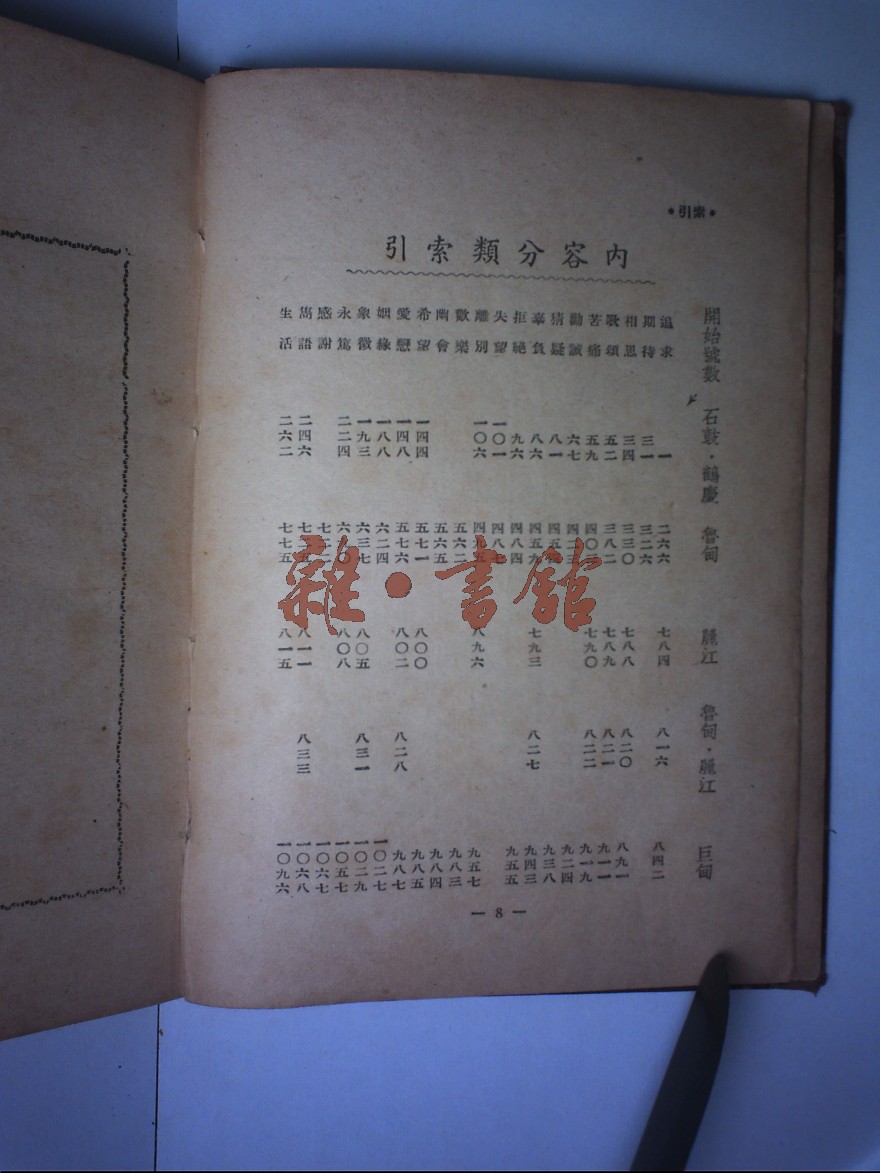 •索引•
內容分類索引
開始號數 石鼓·鶴慶 魯甸 麗江 魯甸·麗江 巨甸
追求 一 二六六 七八四 八一六 八四二
期待 三一 三二六
相思 三四 三三〇 七八八 八二〇 八九一
歌頌 五二 三八二 七八九 八二一 九一一
苦痛 五九 七九〇 八二二 九一九
勸誡 六七 九二四
猜疑 八一 九三八
辜負 八六 四五九 七九三 八二七 九四三
拒絕 九六 四八四 九五五
失望 一〇一 四八七
離別 一〇六 七九六 九五七
歡樂 五六二 九八三
幽會 五六五 九八四
希望 一四四 五七一 八〇〇 九八五
愛戀 一四八 五七六 八〇二 八二八 九八七
姻緣 一八八 六二四 一〇二七
象徵 一九三 六三七 八〇五 八三一 一〇二九
永篤 二二四 八〇八 一〇五七
感謝 七二二 一〇六七
雋語 二四六 八一一 八三三 一〇六八
生活 二六二 七七五 八一五 一〇九六
— 8 —
雜·書館